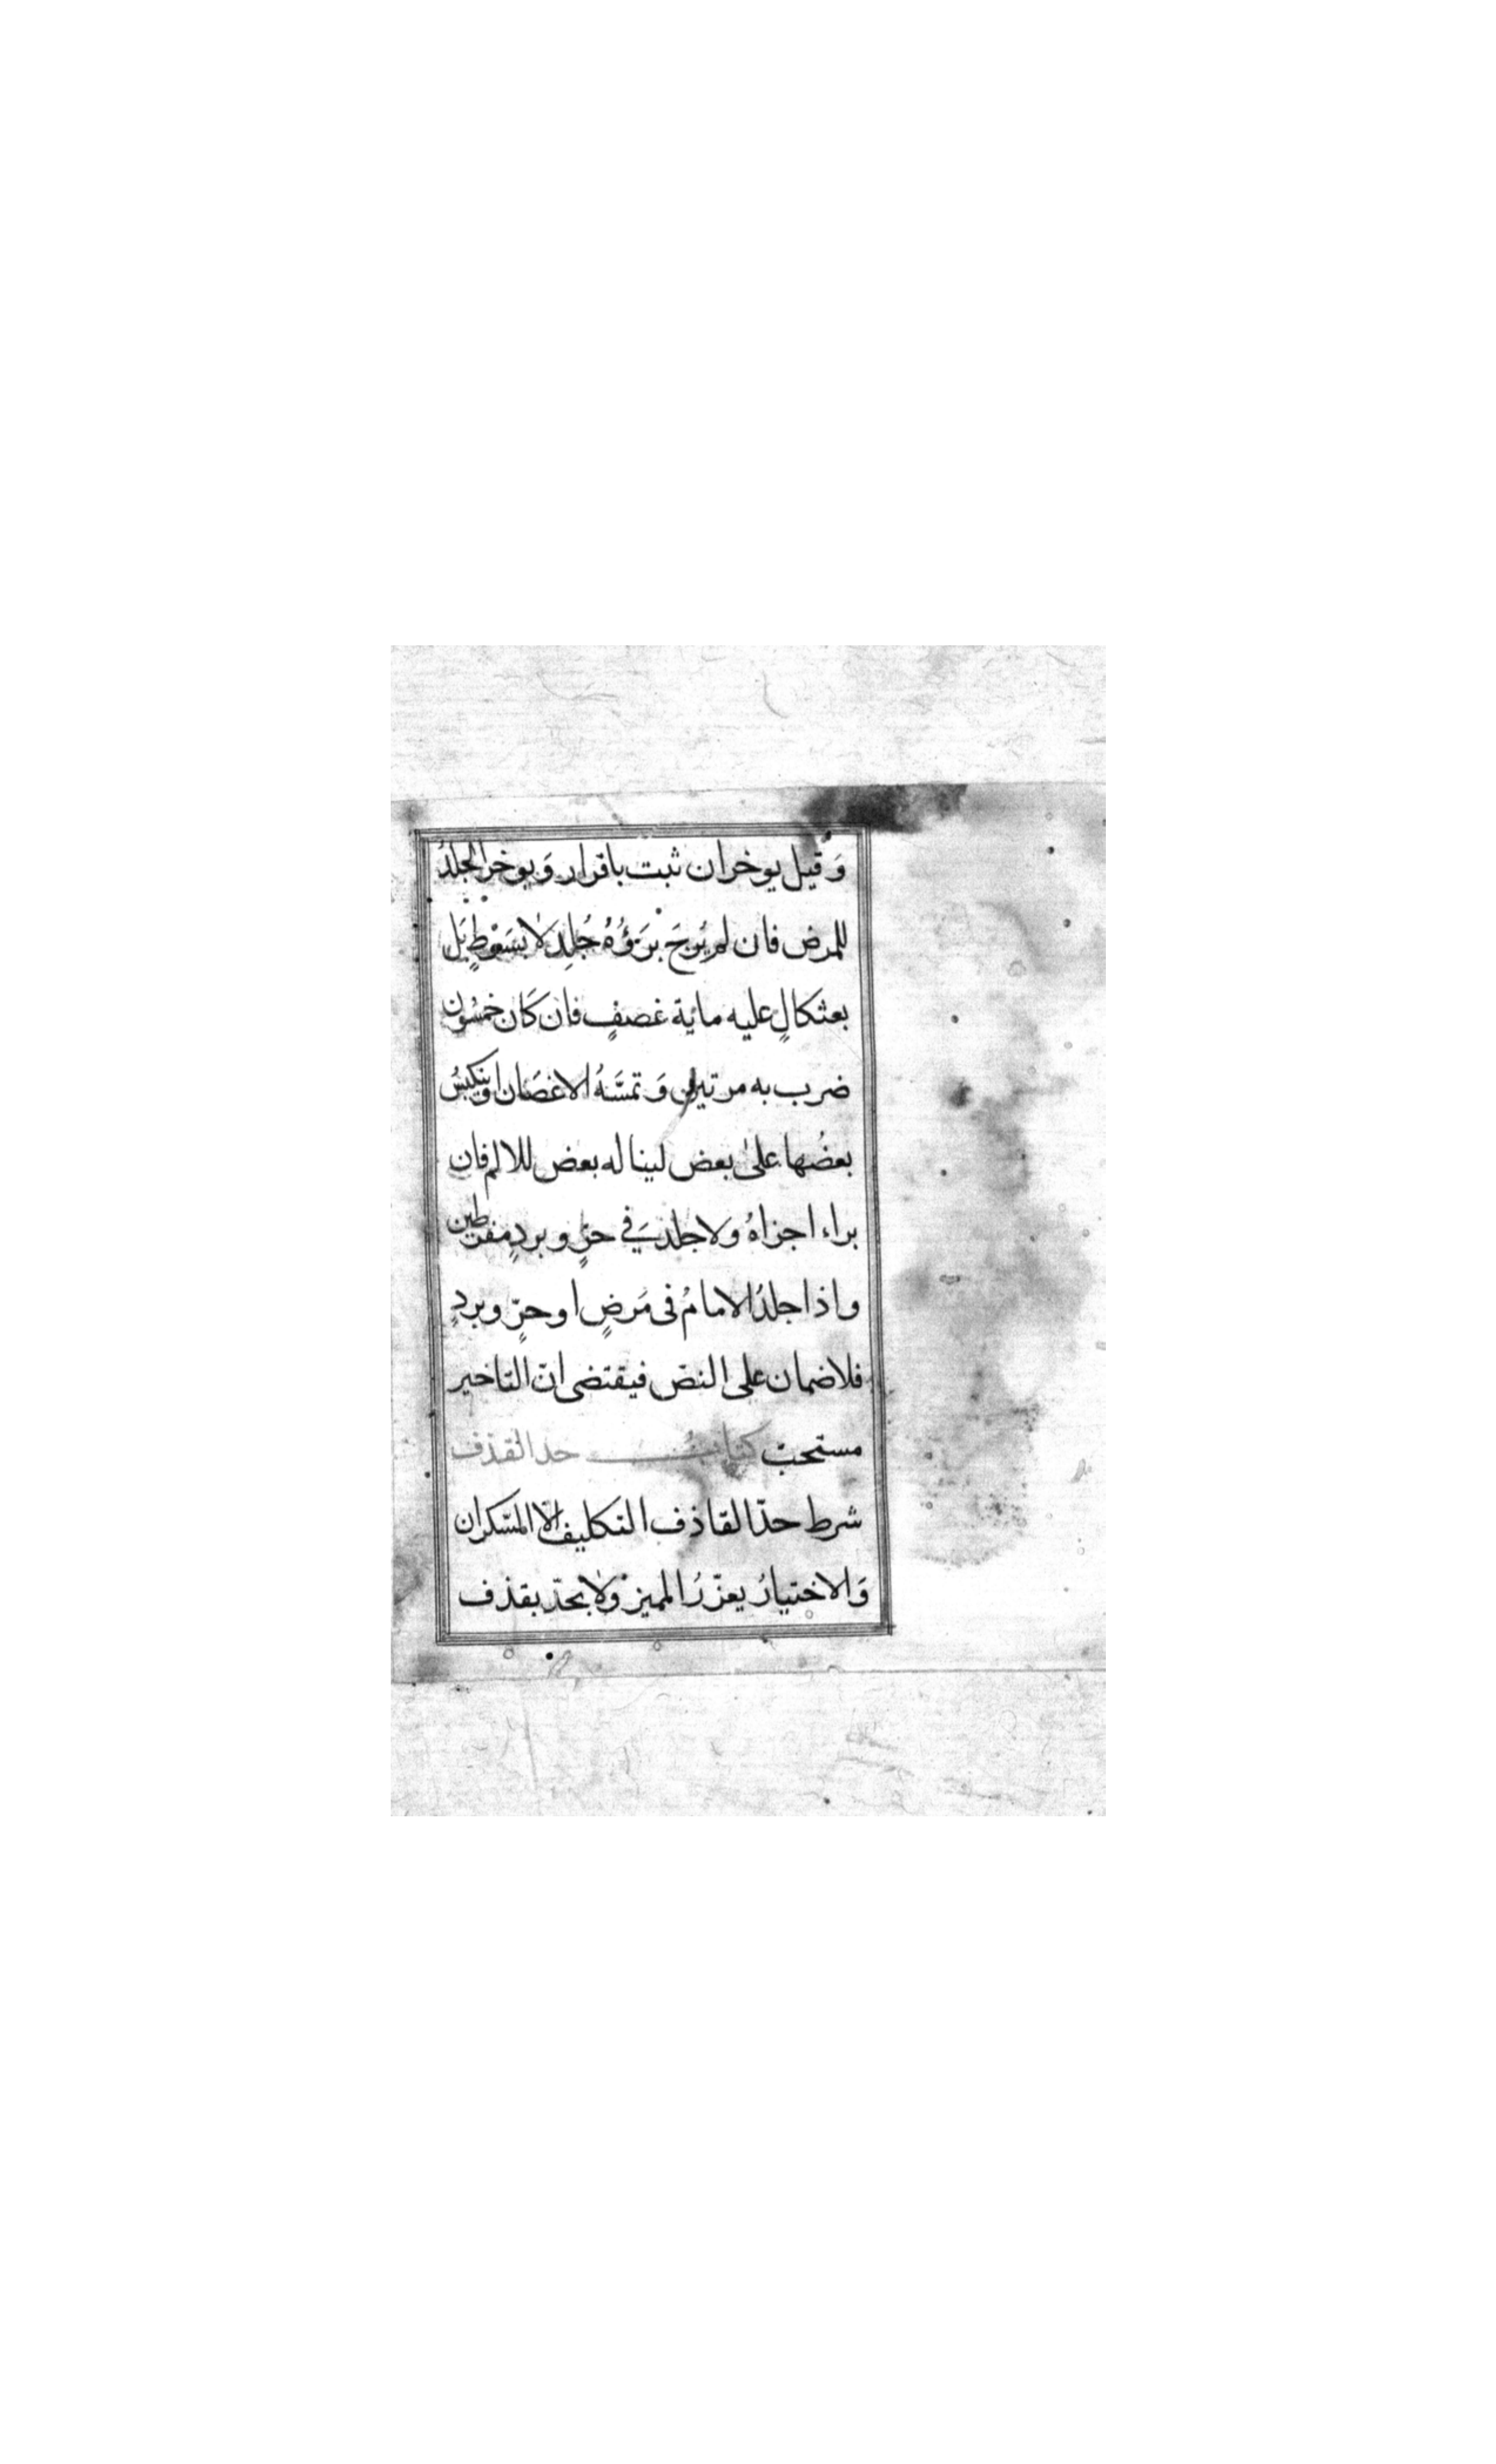 وَقيل يوخر ان ثبت باقرار وَيوخر الجلدُ
للمرض فان لم يُرجَ بَرَؤُهُ جُلِد لا بسَوْطٍ بَل
بعثكالٍ عليه ماية غصنٍ فان كَان خمسُون
ضرب به مرتين وَتمسَّهُ الاغصَان او ينكبسُ
بعضُها على بعض لينا له بعض للالم فان
براء اجزاهُ وَلا جلد في حرٍّ وبردٍ مفرطين
واذا جلدُ الامامُ فى مَرضٍ او حرٍّ وبردٍ
فلا ضمان على النصّ فيقتضى انّ التاخير
مستحبّ كتاب حد القذف
شرط حدّ القاذف التكليف الّا السّكران
وَالاختيارُ يعزّرُ المميز وَلا بحدّ بقذف